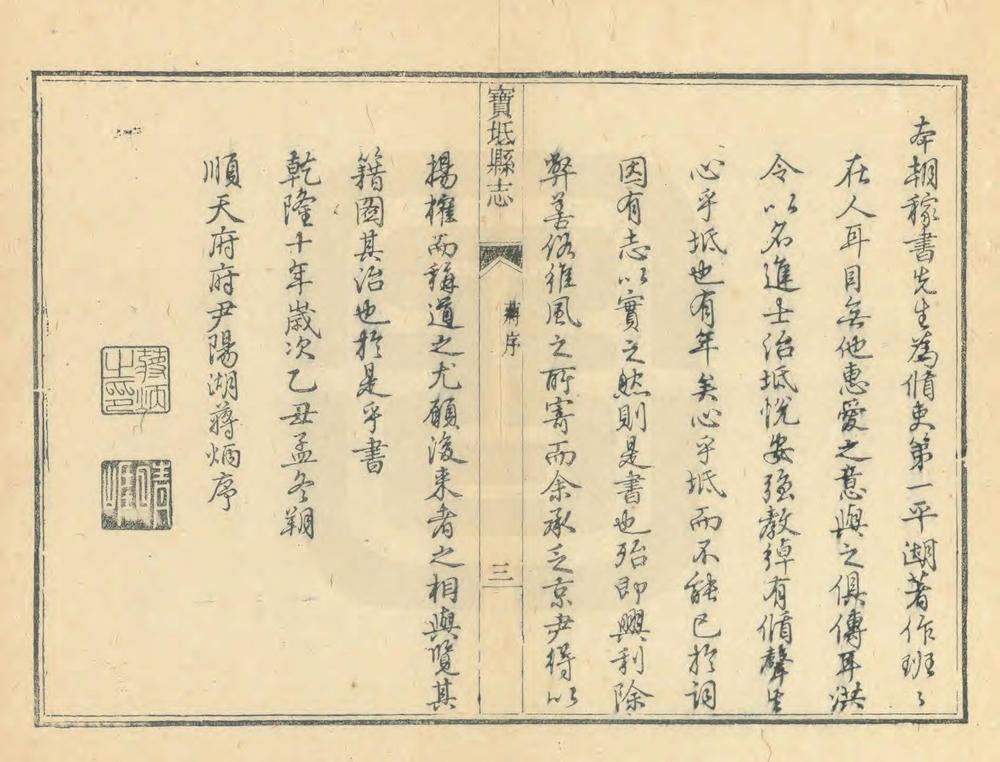 本朝稼書先生為循吏第一平湖著作班〻
在人耳目無他惠愛之意與之俱傳耳洪
令以名進士治坻悅安強教綽有循聲生
心乎坻也有年矣心乎坻而不能已於詞
因有志以實之然則是書也殆即興利除
弊善俗維風之所寄而余承乏京尹得以
寶坻縣志
蔣序
三
揚榷而稱道之尤願後来者之相與覽其
籍圖其治也於是乎書
乾隆十年歲次乙丑孟冬朔
順天府府尹陽湖蔣炳序
蔣炳之印